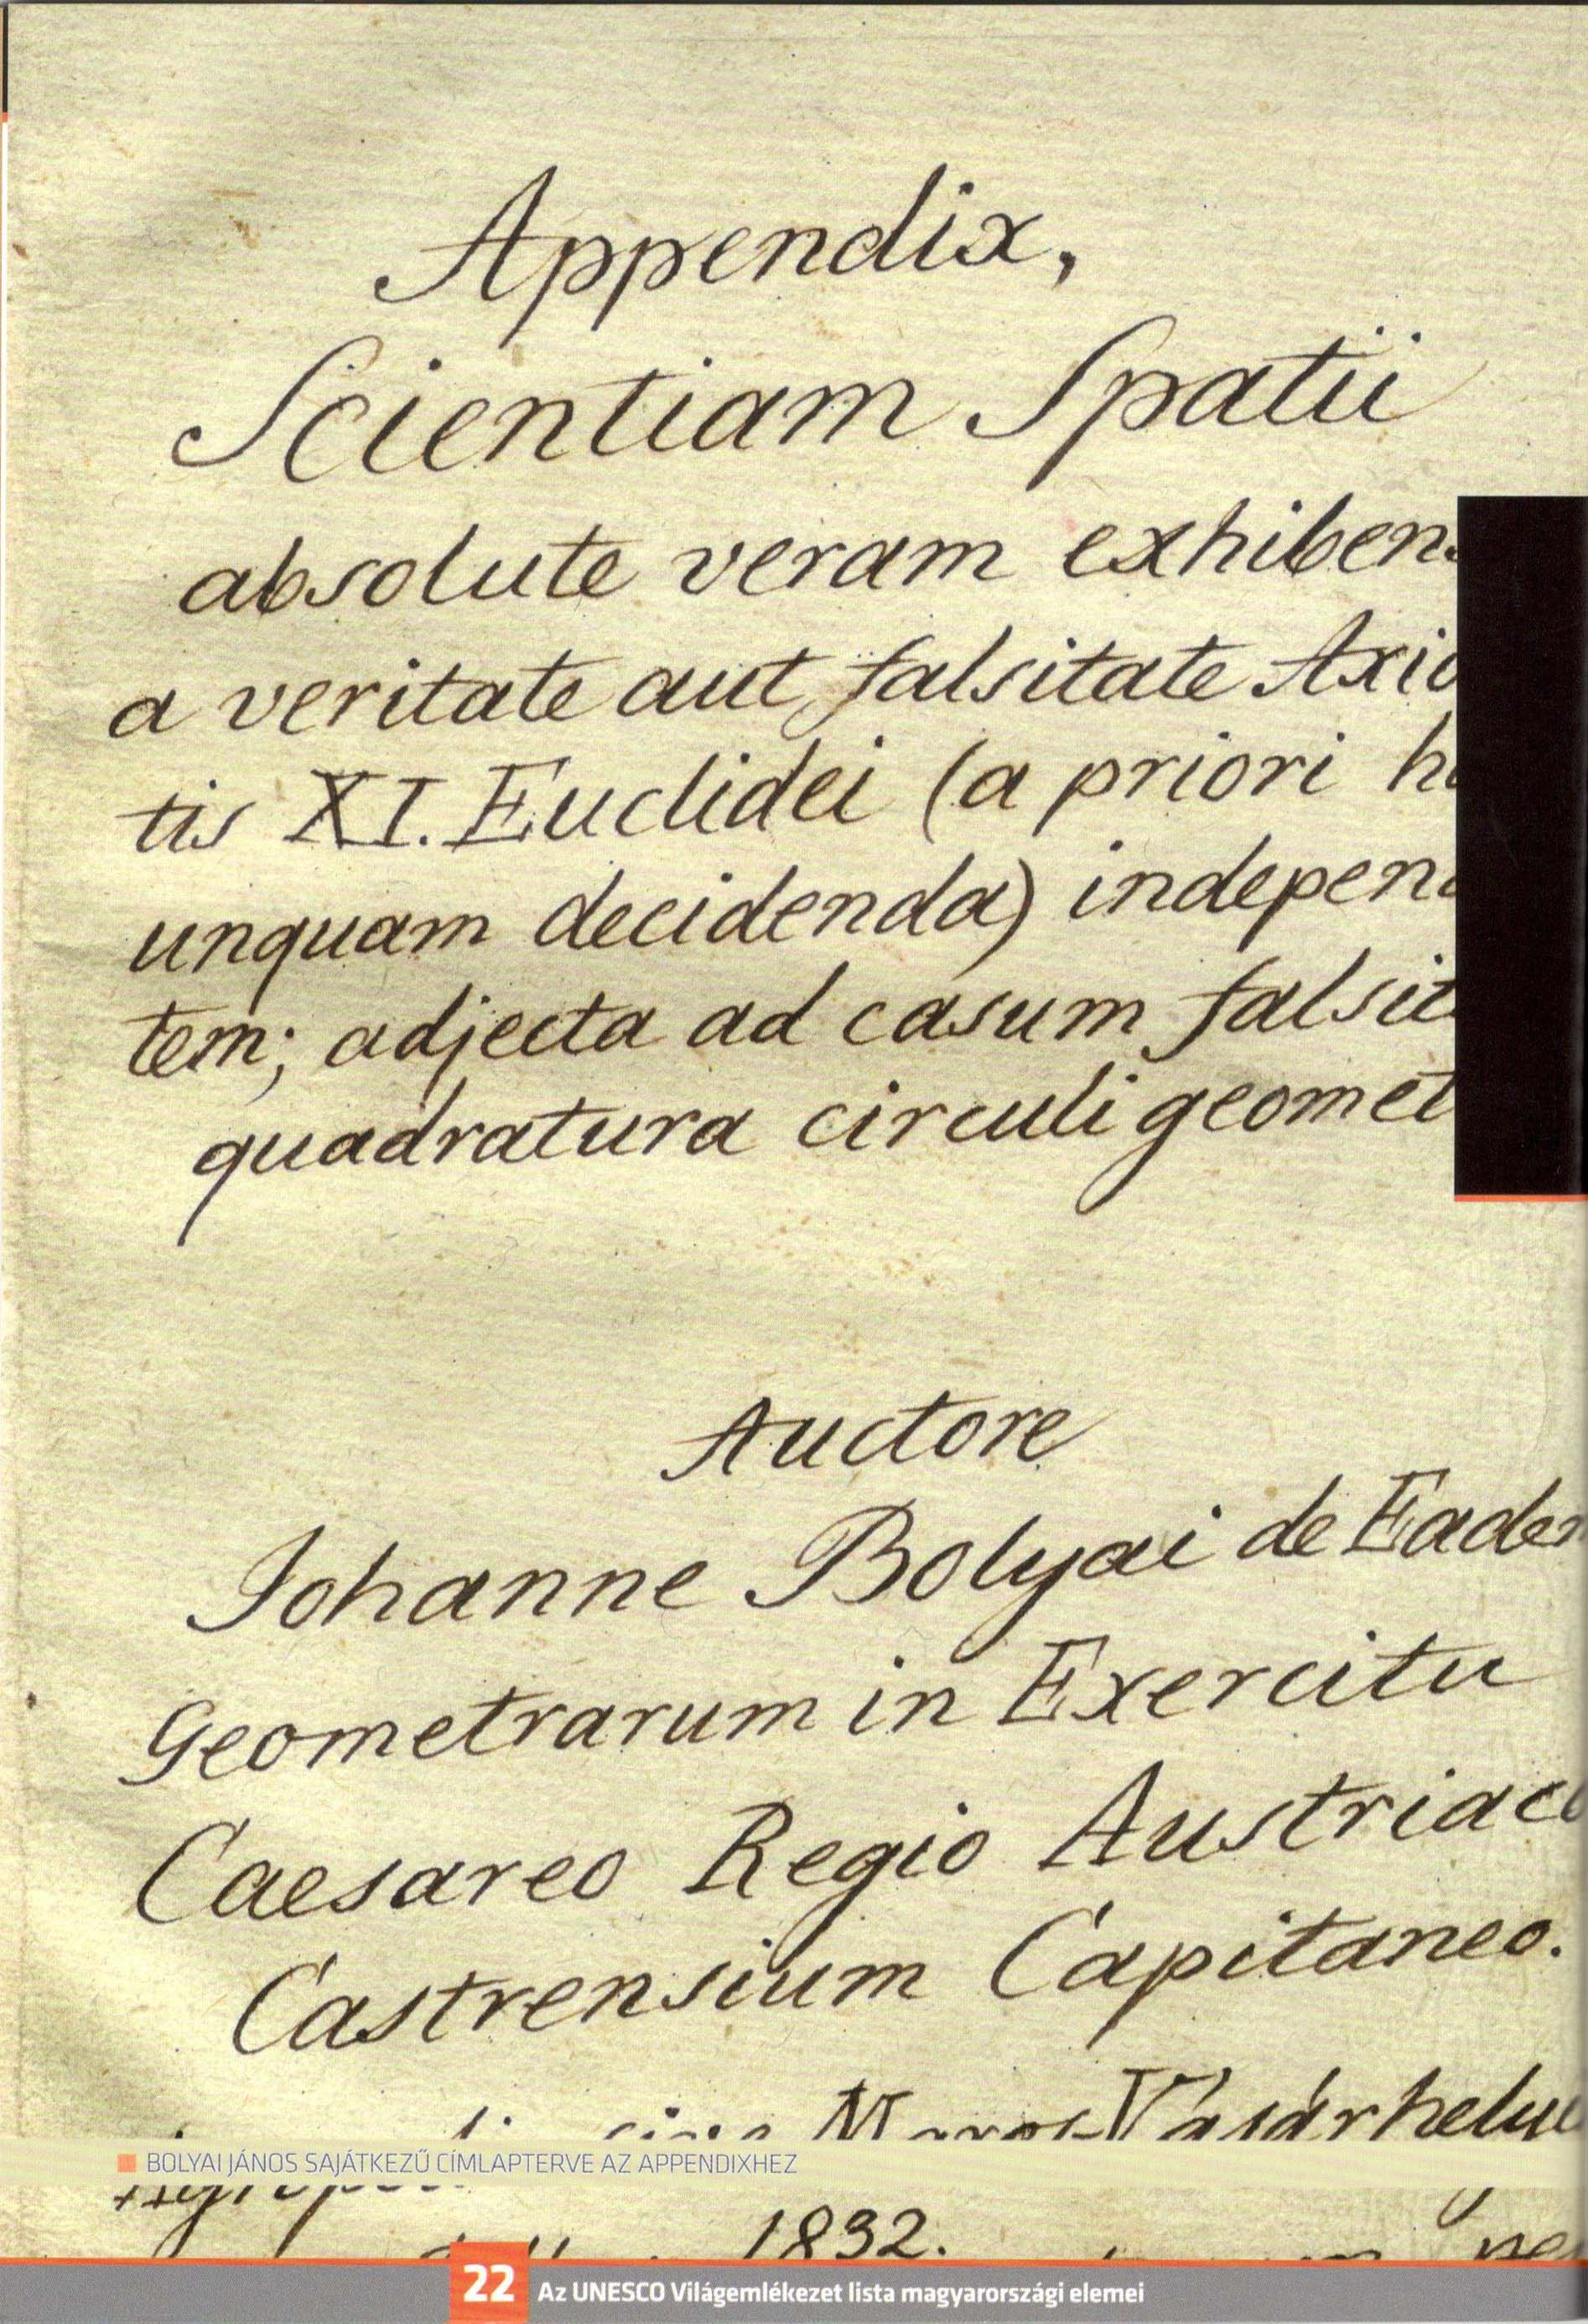 Appendix,
Scientiam Spatii
absolute veram exhibens
a veritate aut falsitate Axio
tis XI. Euclidei (a priori
unquam decidenda) indepen
tem; adjecta ad casum falsit
quadratura circuli geomet
Auctore
Johanne Bolyai de Eadem
Geometrarum in Exercitu
Caesareo Regio Austriaco
Castrensium Capitaneo.
Maros-Vásárhelyi
BOLYAI JÁNOS SAJÁTKEZŰ CÍMLAPTERVE AZ APPENDIXHEZ
1832.
22 Az UNESCO Világemlékezet lista magyarországi elemei